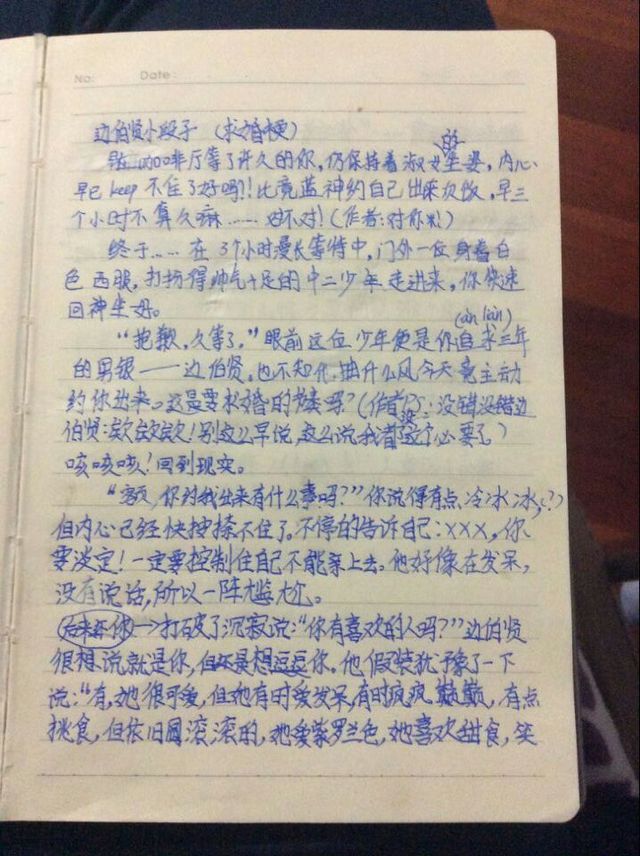 No:    Date:
边伯贤小段子 (求婚梗)
咖啡厅等了许久的你,仍保持着淑女的坐姿,内心
早已keep不住了好吗!比竟蓝神约自己出来次饭,早三
个小时不算久嘛……对不对!(作者:对你
终于……在3个小时漫长等待中,门外一位身着白
色西服,打扮得帅气十足的中二少年走进来,你快速
回神坐好。
(àn liàn)
“抱歉,久等了。”眼前这位少年便是你自求三年
的男银——边伯贤。也不知什么风今天竟主动
约你出来。这是要求婚的节奏吗?(作者:没错没错边
伯贤:欸欸欸!别这么早说,这么说我都没这个必要了)
咳咳咳!回到现实。
“你约我出来有什么事吗?”你说得有点冷冰冰(?)
但内心已经快按捺不住了。不停的告诉自己:XXX,你
要淡定!一定要控制住自己不能亲上去。他好像在发呆,
没有说话,所以一阵尴尬。
你→打破了沉寂说:“你有喜欢的人吗?”边伯贤
很想说就是你,但还是想逗逗你。他假装犹豫了一下
说:“有,她很可爱,但她有时爱发呆,有时疯疯癫癫,有点
挑食,但依旧圆滚滚的,她爱紫罗兰色,她喜欢甜食,笑